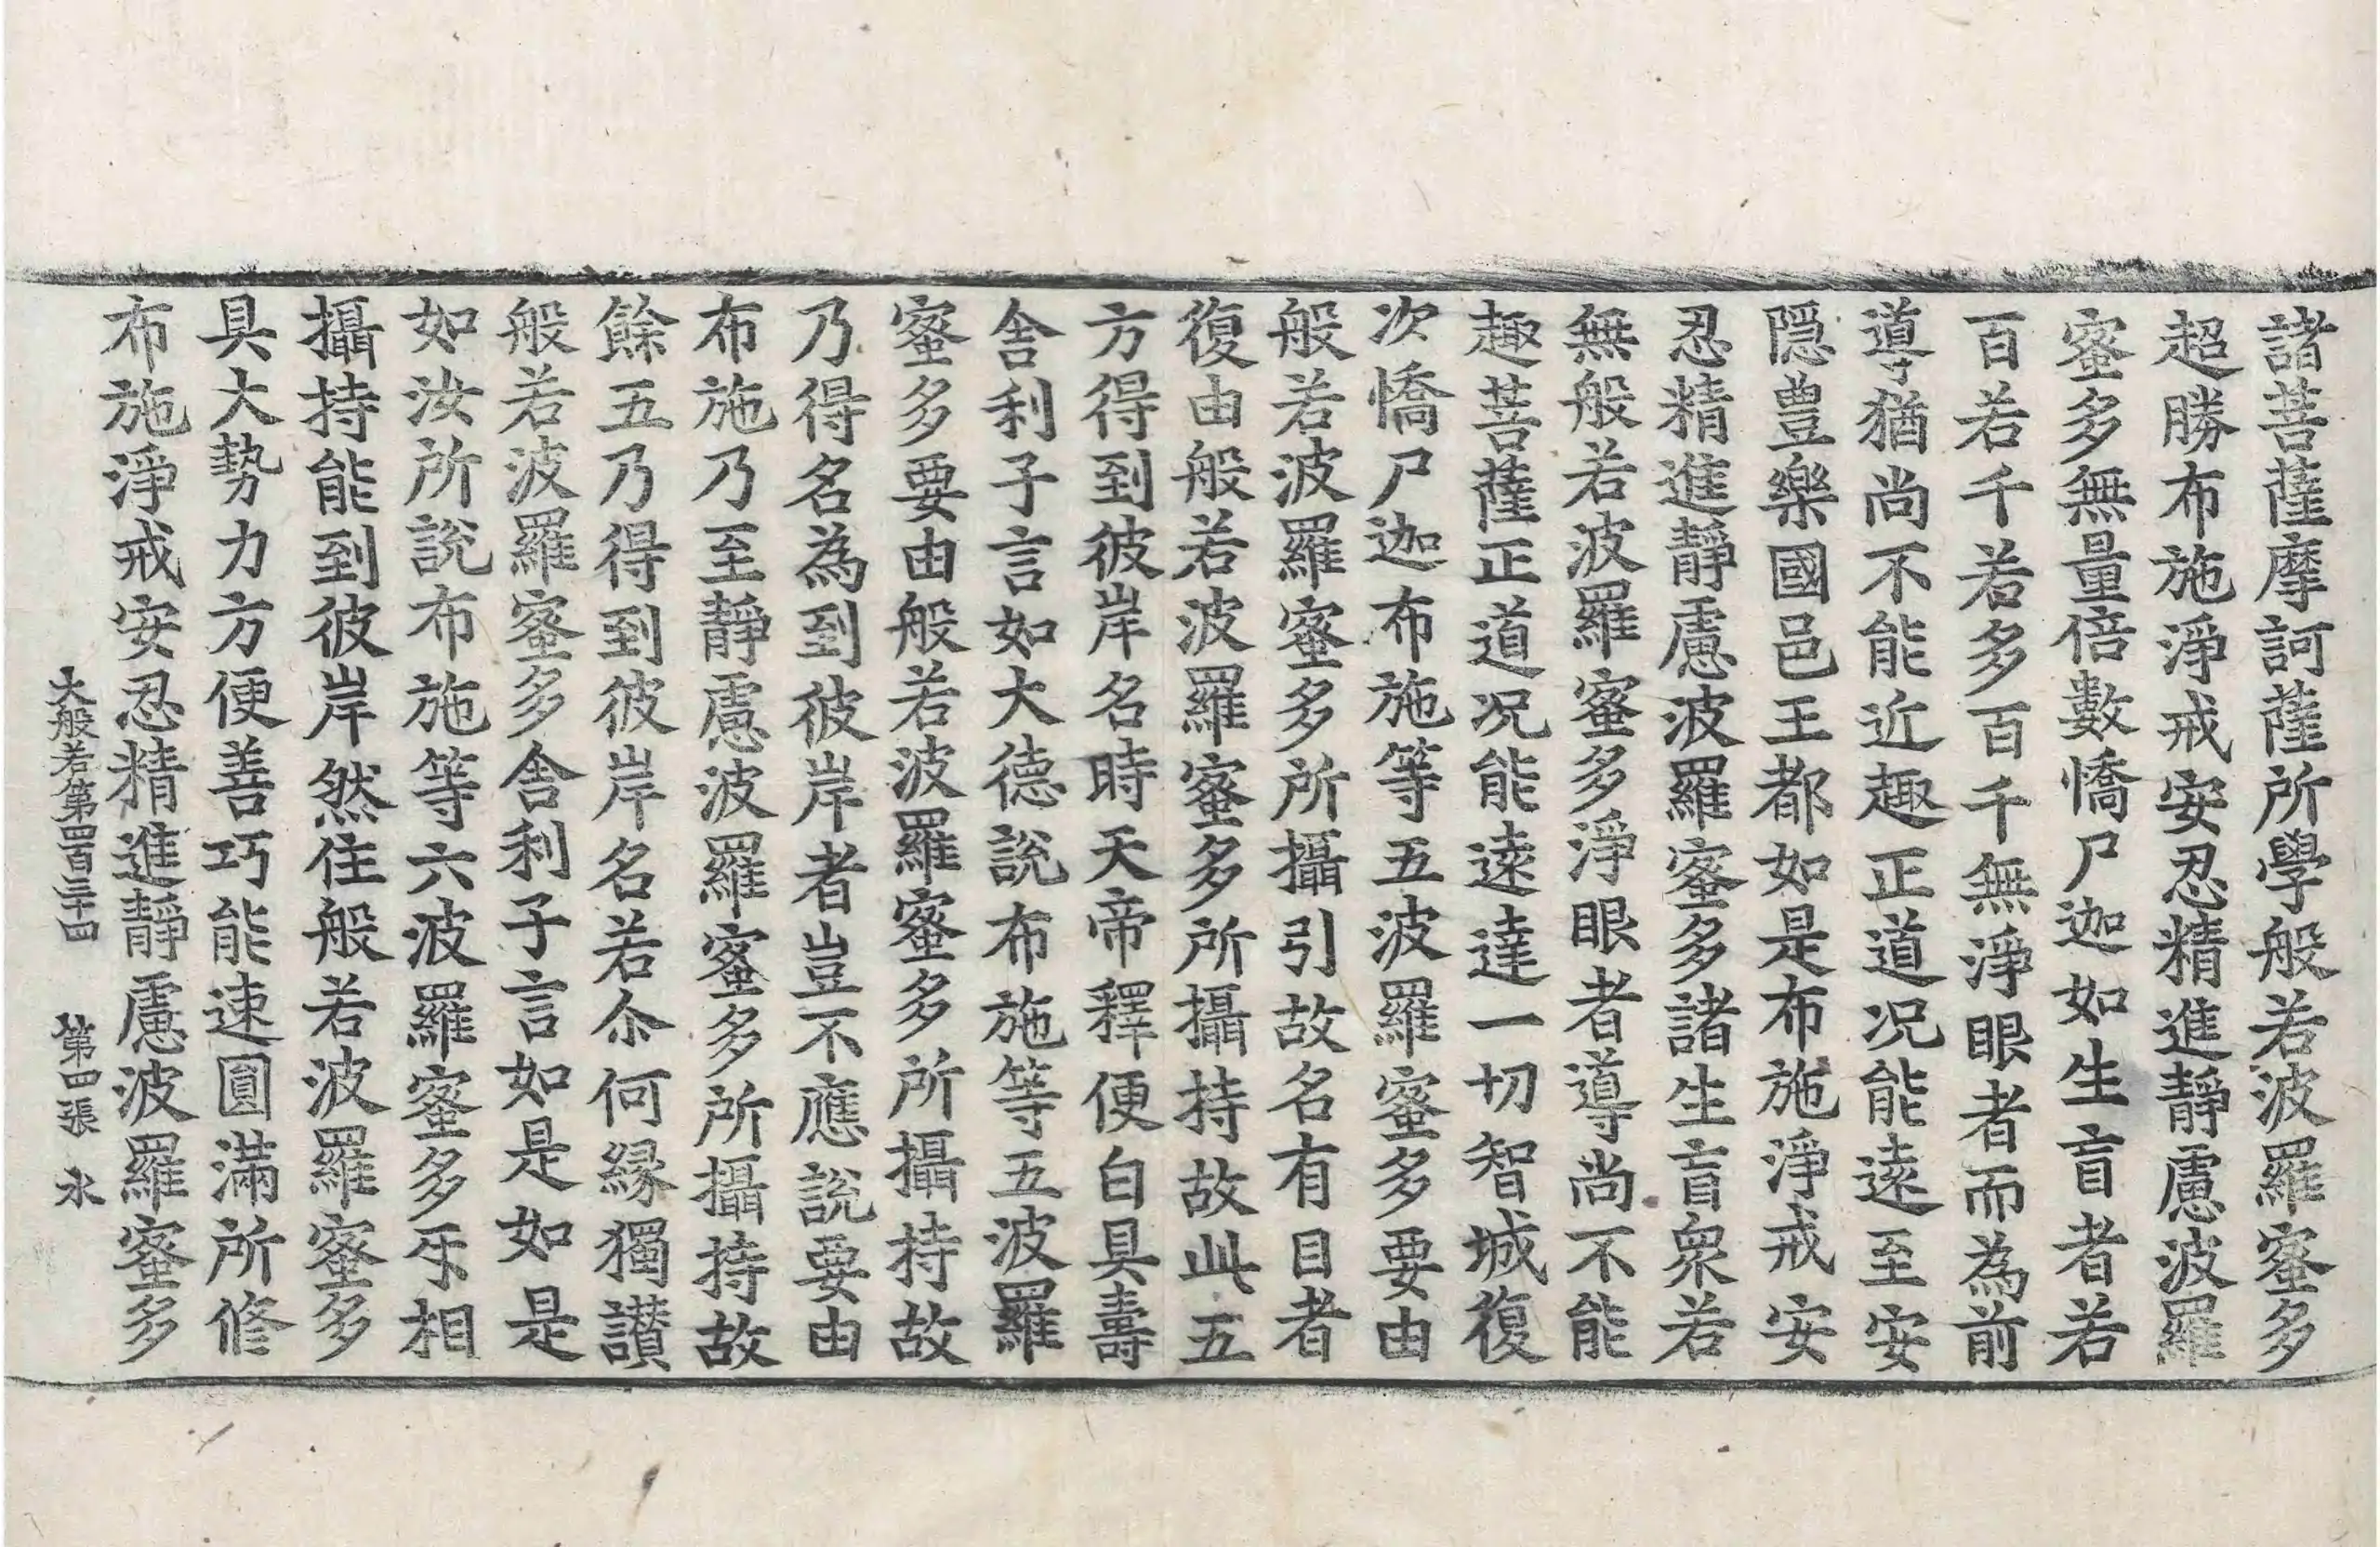 諸菩薩摩訶薩所學般若波羅蜜多
超勝布施淨戒安忍精進靜慮波羅
蜜多無量倍數憍尸迦如生盲者若
百若千若多百千無淨眼者而為前
導猶尚不能近趣正道况能遠至安
隱豊樂國邑王都如是布施淨戒安
忍精進靜慮波羅蜜多諸生盲衆若
無般若波羅蜜多淨眼者導尚不能
趣菩薩正道况能遠達一切智城復
次憍尸迦布施等五波羅蜜多要由
般若波羅蜜多所攝引故名有目者
復由般若波羅蜜多所攝持故此五
方得到彼岸名時天帝釋便白具壽
舍利子言如大德說布施等五波羅
蜜多要由般若波羅蜜多所攝持故
乃得名為到彼岸者豈不應說要由
布施乃至靜慮波羅蜜多所攝持故
餘五乃得到彼岸名若尒何緣獨讃
般若波羅蜜多舍利子言如是如是
如汝所說布施等六波羅蜜多㸦相
攝持能到彼岸然住般若波羅蜜多
具大勢力方便善巧能速圓滿所修
布施淨戒安忍精進靜慮波羅蜜多
大般若第四百三十四　第四張　永